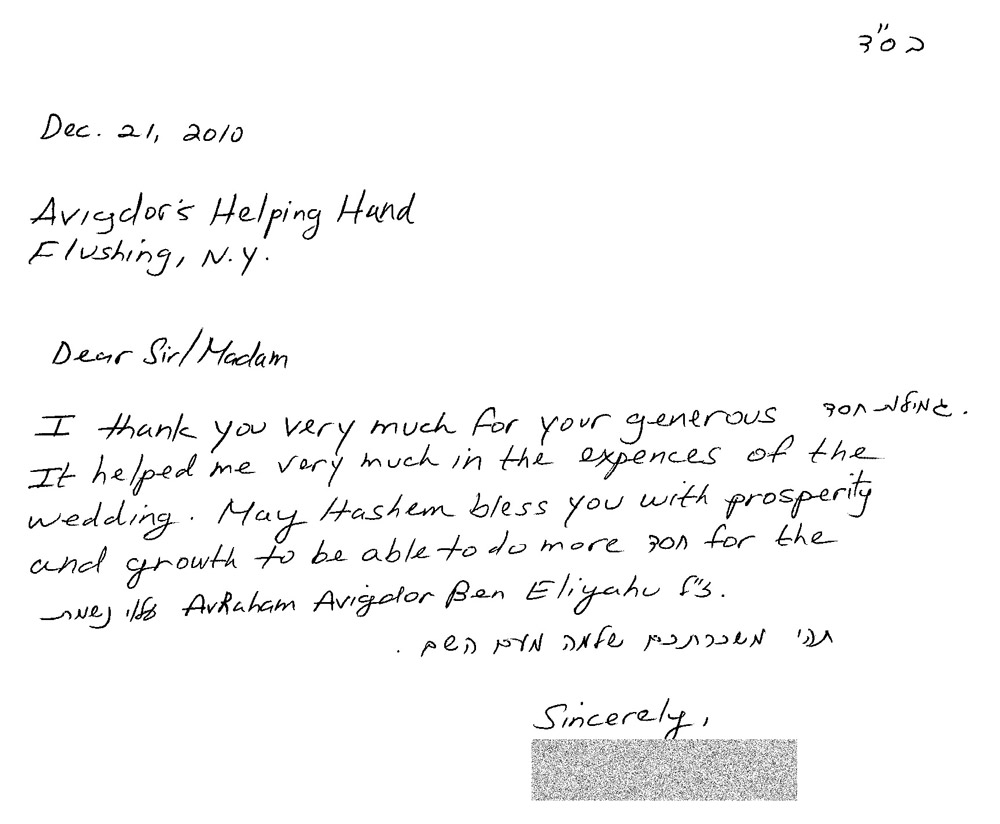 בס"ד
Dec. 21, 2010
Avigdor's Helping Hand
Flushing, N.Y.
Dear Sir/Madam
I thank you very much for your generous גמילת חסד.
It helped me very much in the expences of the
wedding. May Hashem bless you with prosperity
and growth to be able to do more חסד for the
עלוי נשמת AvRaham Avigdor Ben Eliyahu ז"ל.
תהי משכרתכם שלמה מעם השם.
Sincerely,